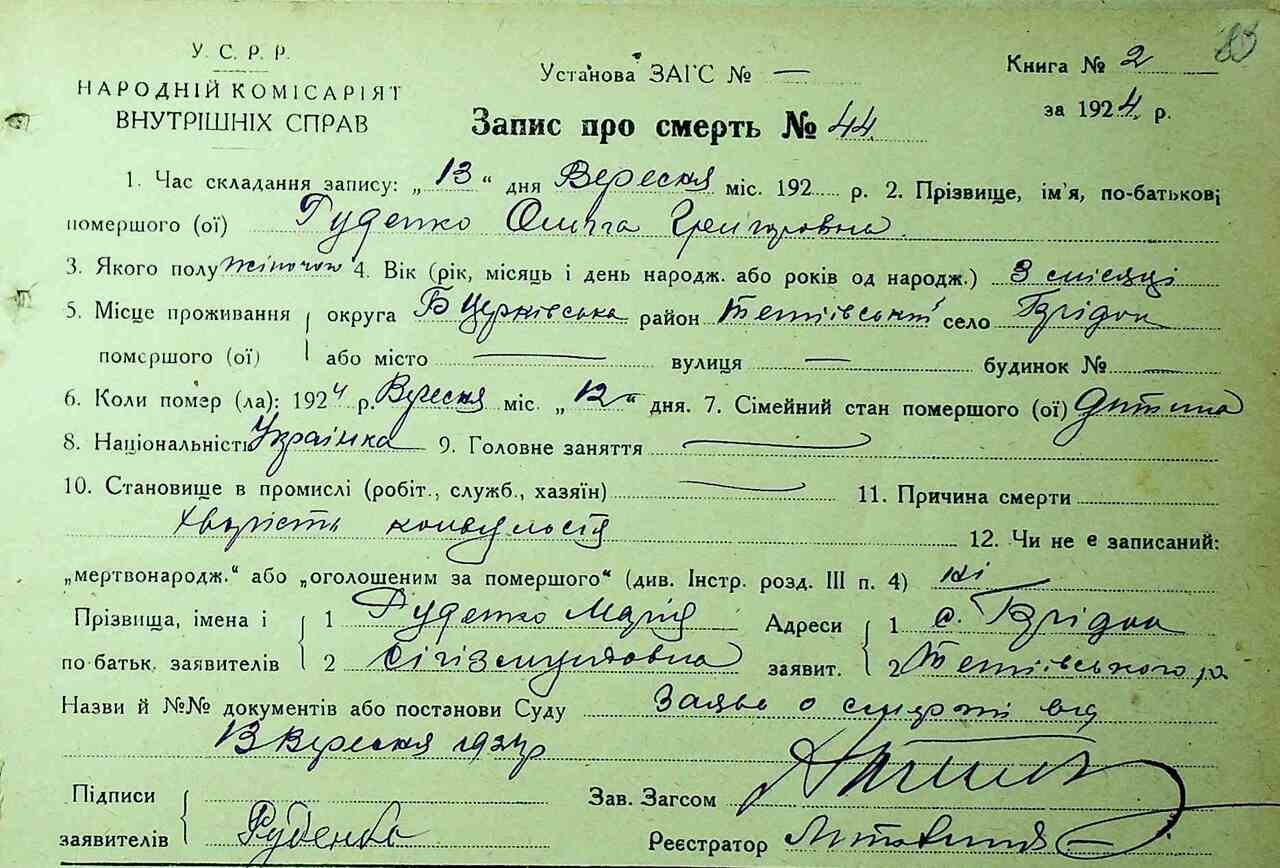 83
У. С. Р. Р.
НАРОДНІЙ КОМІСАРІЯТ
ВНУТРІШНІХ СПРАВ
Установа ЗАГС № —
Книга № 2
за 1924 р.
Запис про смерть № 44
1. Час складання запису: „13“ дня Вересня міс. 192 р. 2. Прізвище, ім'я, по-батькові
помершого (ої) Руденко Ольга Григоровна
3. Якого полу жіночого 4. Вік (рік, місяць і день народж. або років од народж.) 3 місяці
5. Місце проживання округа Б Церківська район Тетіївський село
помершого (ої) або місто — вулиця — будинок № —
6. Коли помер (ла): 1924 р. Вересня міс. „12“ дня. 7. Сімейний стан помершого (ої) Дитина
8. Національність Українка 9. Головне заняття —
10. Становище в промислі (робіт., служб., хазяїн) — 11. Причина смерти
12. Чи не є записаний:
„мертвонародж.“ або „оголошеним за помершого“ (див. Інстр. розд. III п. 4) ні
Прізвища, імена і 1 Руденко Марія Адреси 1 с.
по батьк. заявителів 2 Сігізмундовна заявит. 2 Тетіївського р
Назви й №№ документів або постанови Суду Заява о смерті від
13 Вересня 1924 р
Підписи
заявителів Руденко
Зав. Загсом
Реєстратор